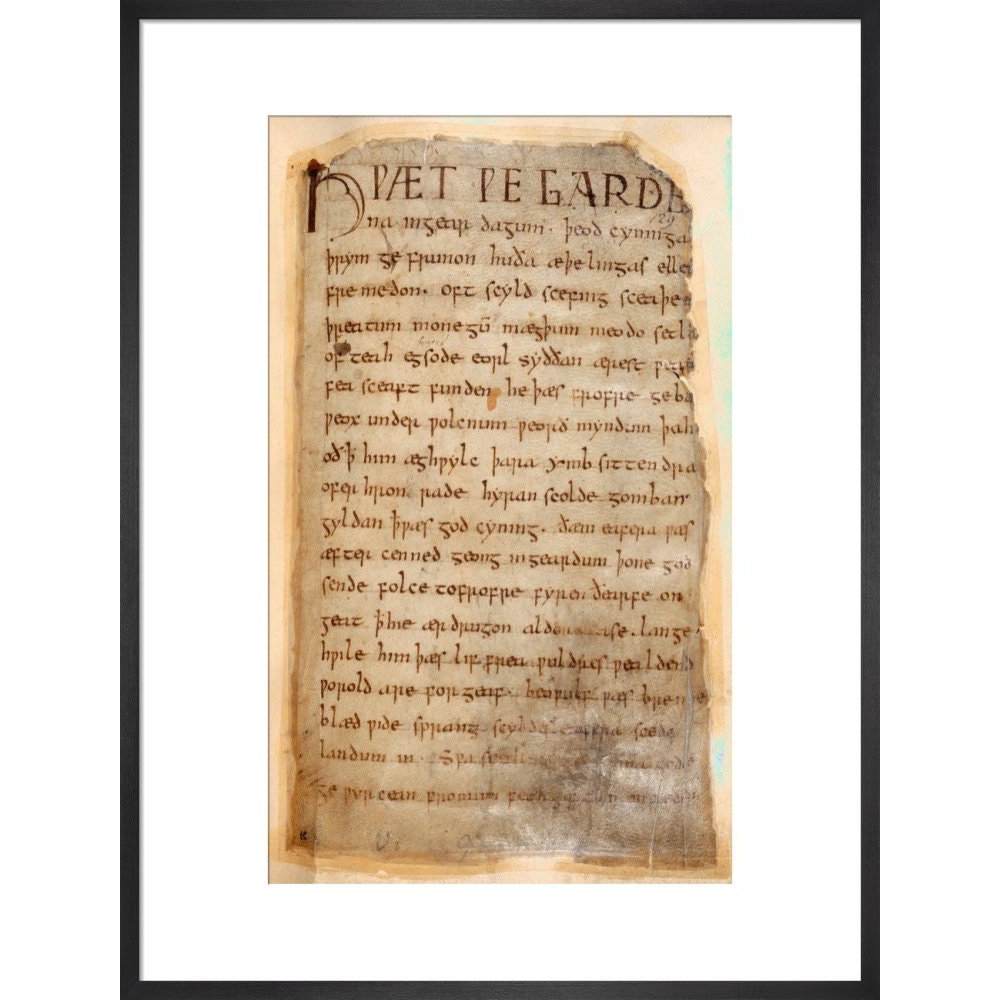 HǷÆT ǷE GARDE
na ingear dagum. þeod cyninga
þrym ge frunon huða æþelingas elle
fre medon. oft scyld scefing sceaþe
þreatum monegū mægþum meodo setla
of teah egsode eorl syððan ærest ƿear
fea sceaft funden he þæs frofre geba
ƿeox under ƿolcnum ƿeorð myndum þah
oð ꝥ him æghƿylc þara ymb sittendra
ofer hron rade hyran scolde gomban
gyldan ꝥ ƿæs god cyning. ðæm eafera ƿæs
æfter cenned geong ingeardum þone god
sende folce tofrofre fyren ðearfe on
geat ꝥ hie ær drugon aldor ase. lange
hƿile him þæs lif frea ƿuldres ƿealdend
ƿorold are for geaf. beoƿulf ƿæs breme
blæd ƿide sprang scyldes eafera scede
landum in. Sƿa sceal gode
ge ƿyrcean fromum feoh